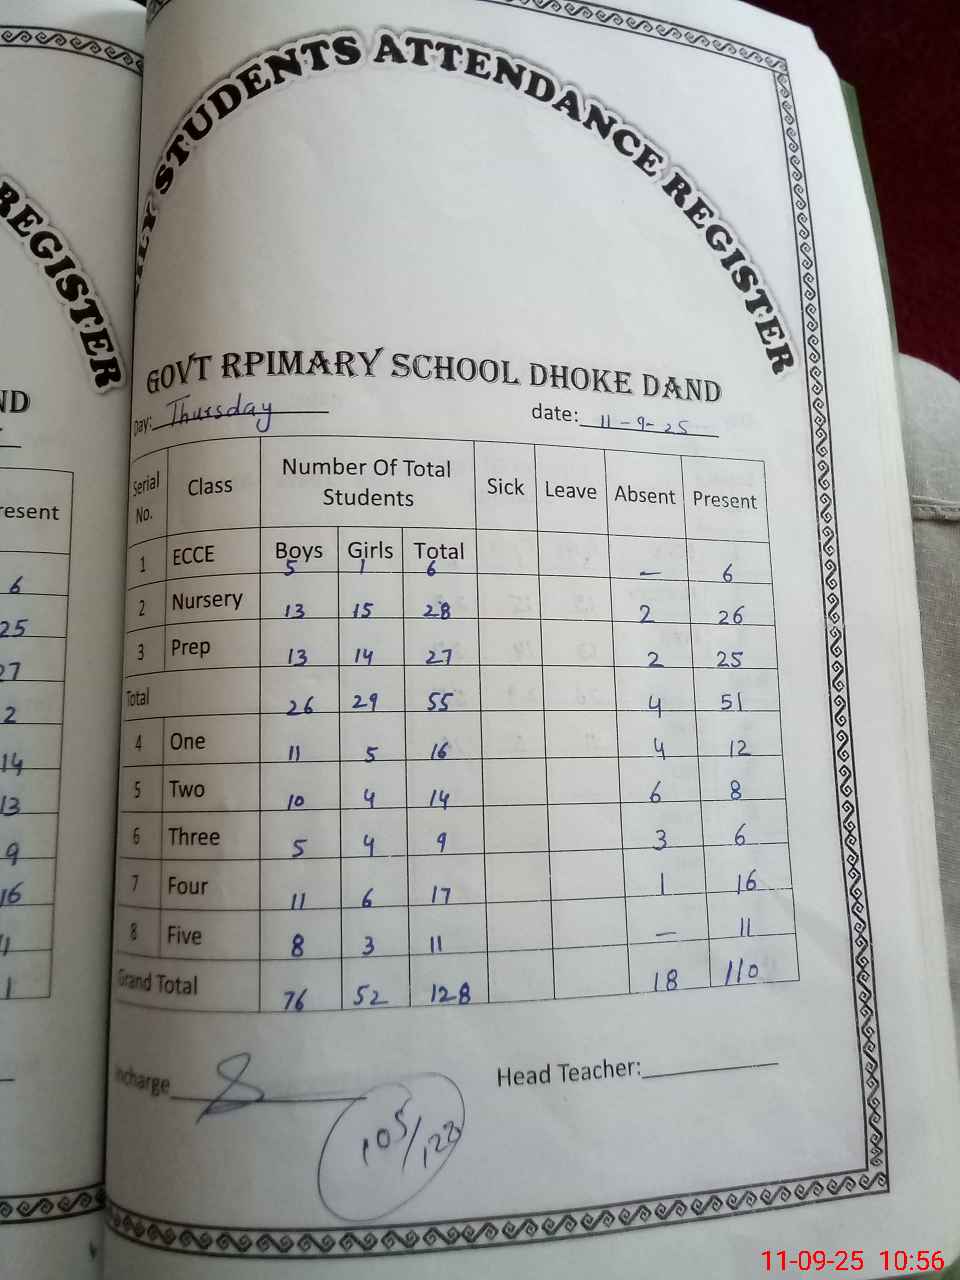 REGISTER
ND
resent
6
25
27
2
14
13
9
16
1
STUDENTS ATTENDANCE REGISTER
GOVT RPIMARY SCHOOL DHOKE DAND
Day: Thursday date: 11-9-25
Serial No. Class Number Of Total Students Sick Leave Absent Present
Boys Girls Total
1 ECCE 5 1 6 — 6
2 Nursery 13 15 28 2 26
3 Prep 13 14 27 2 25
Total 26 29 55 4 51
4 One 11 5 16 4 12
5 Two 10 4 14 6 8
6 Three 5 4 9 3 6
7 Four 11 6 17 1 16
8 Five 8 3 11 — 11
Grand Total 76 52 128 18 110
Incharge Head Teacher:
105/128
11-09-25 10:56